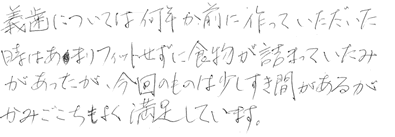 義歯については何年か前に作っていただいた
時はあまりフィットせずに食物が詰まっていたみ
があったが、今回のものは少しすき間があるが
かみごこちもよく満足しています。